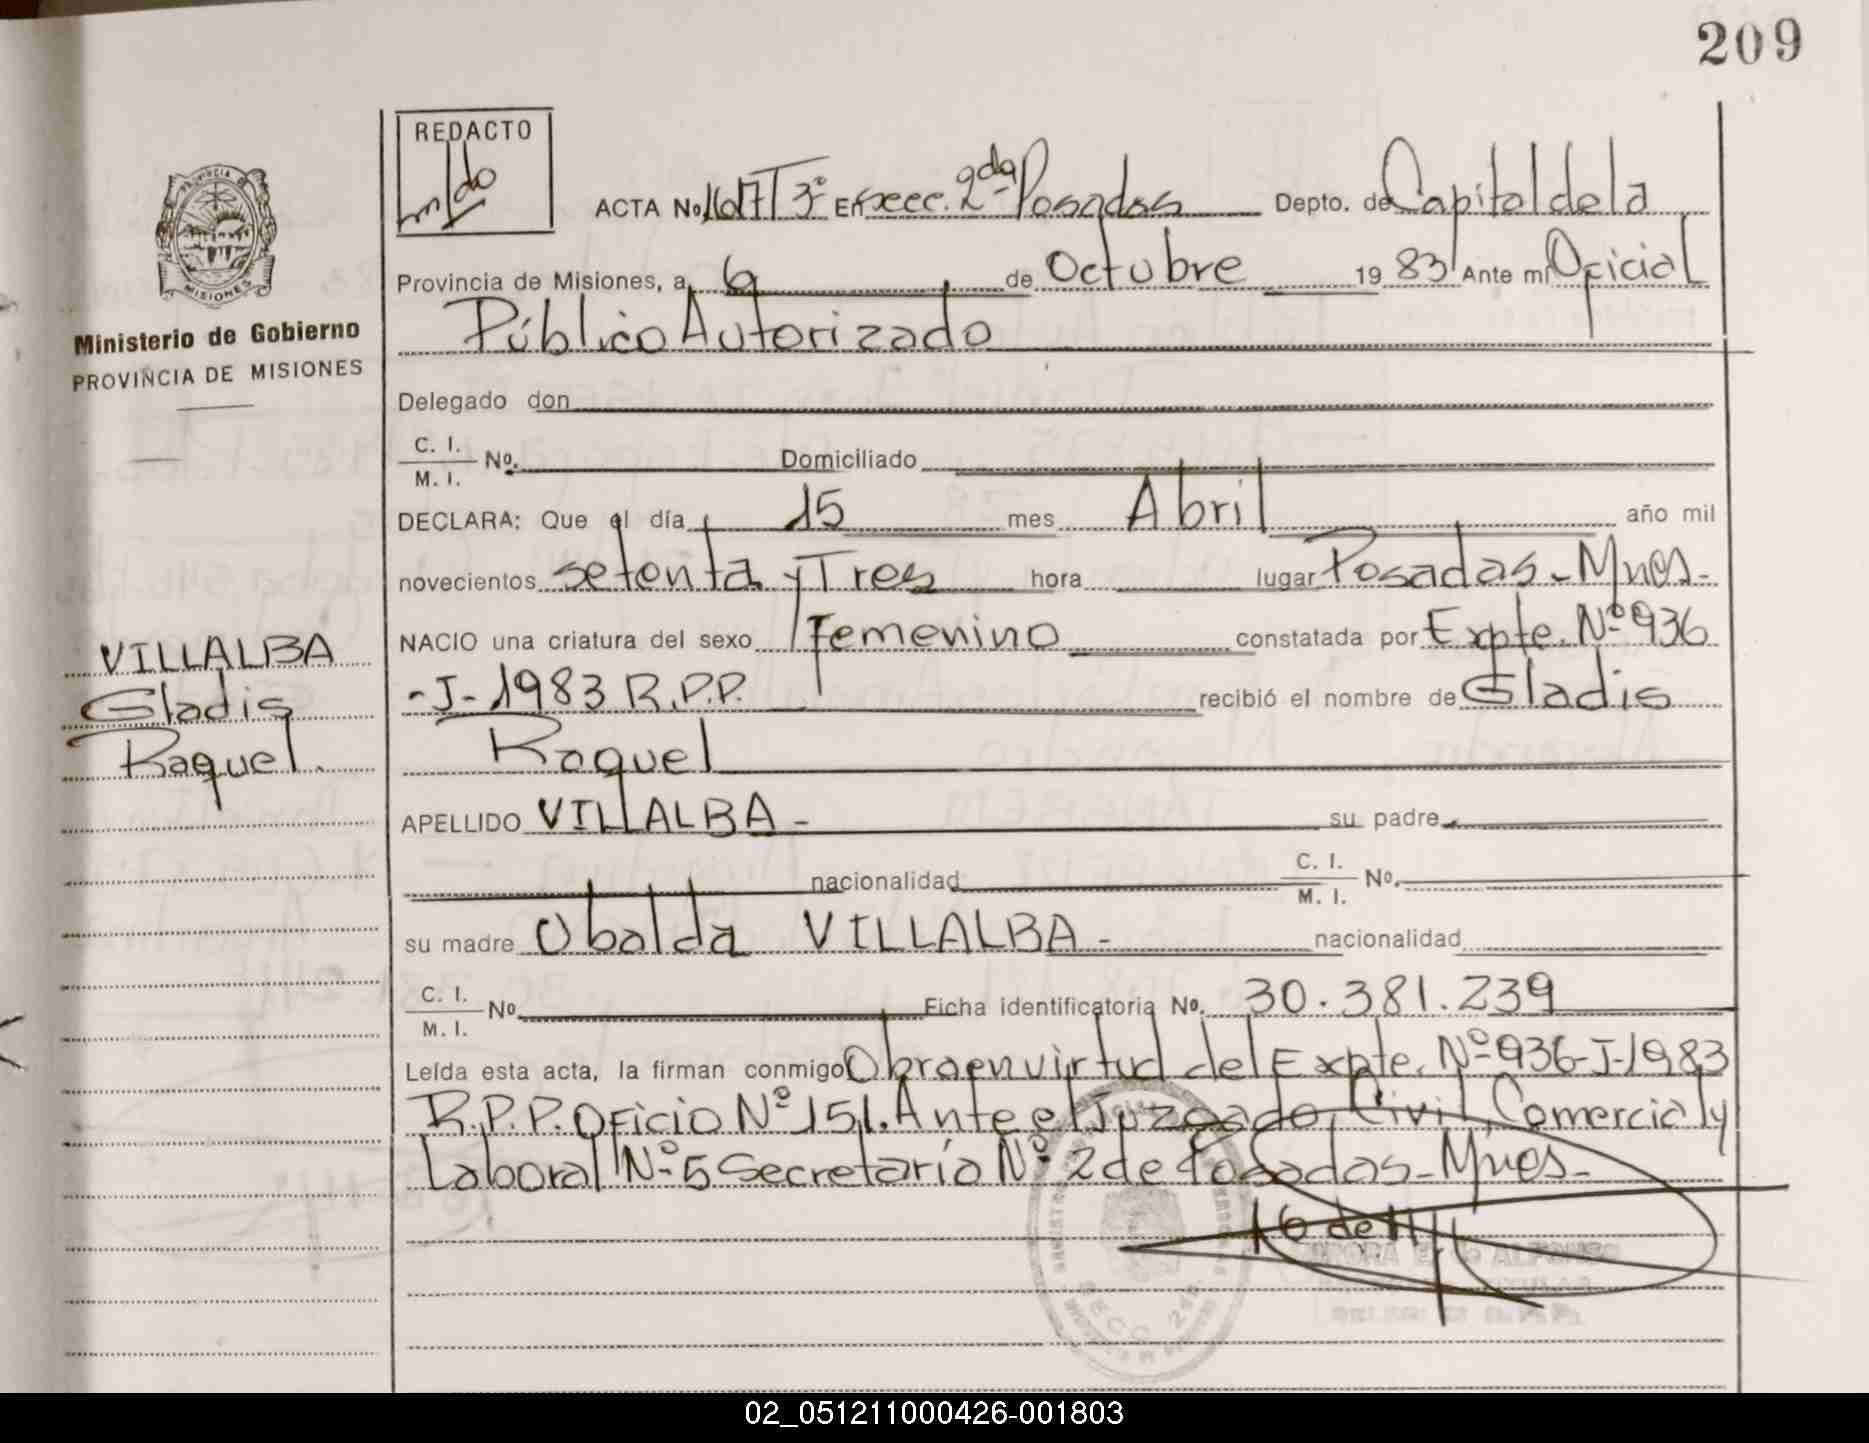 209
REDACTO
ACTA No 1607 T 3º En secc. 2da Posadas Depto. de Capital de la
Provincia de Misiones, a 6 de Octubre 1983 Ante mí Oficial
Público Autorizado
PROVINCIA DE
MISIONES
Ministerio de Gobierno
PROVINCIA DE MISIONES
Delegado don
C. I.
M. I. Nº. Domiciliado
DECLARA: Que el día 15 mes Abril año mil
novecientos setenta y Tres hora lugar Posadas - Mnes -
NACIO una criatura del sexo Femenino constatada por Expte. Nº 936
- J - 1983 R.P.P. recibió el nombre de Gladis
Raquel
VILLALBA
Gladis
Raquel.
APELLIDO VILLALBA - su padre
nacionalidad C. I.
M. I. Nº.
su madre Obalda VILLALBA - nacionalidad
C. I.
M. I. Nº Ficha identificatoria Nº. 30.381.239
Leída esta acta, la firman conmigo Obra en virtud del Expte. Nº 936-J-1983
R.P.P. Oficio Nº 151. Ante el Juzgado Civil, Comercial y
Laboral Nº 5 Secretaría Nº 2 de Posadas - Mnes -
SECC. 2da
02_051211000426-001803